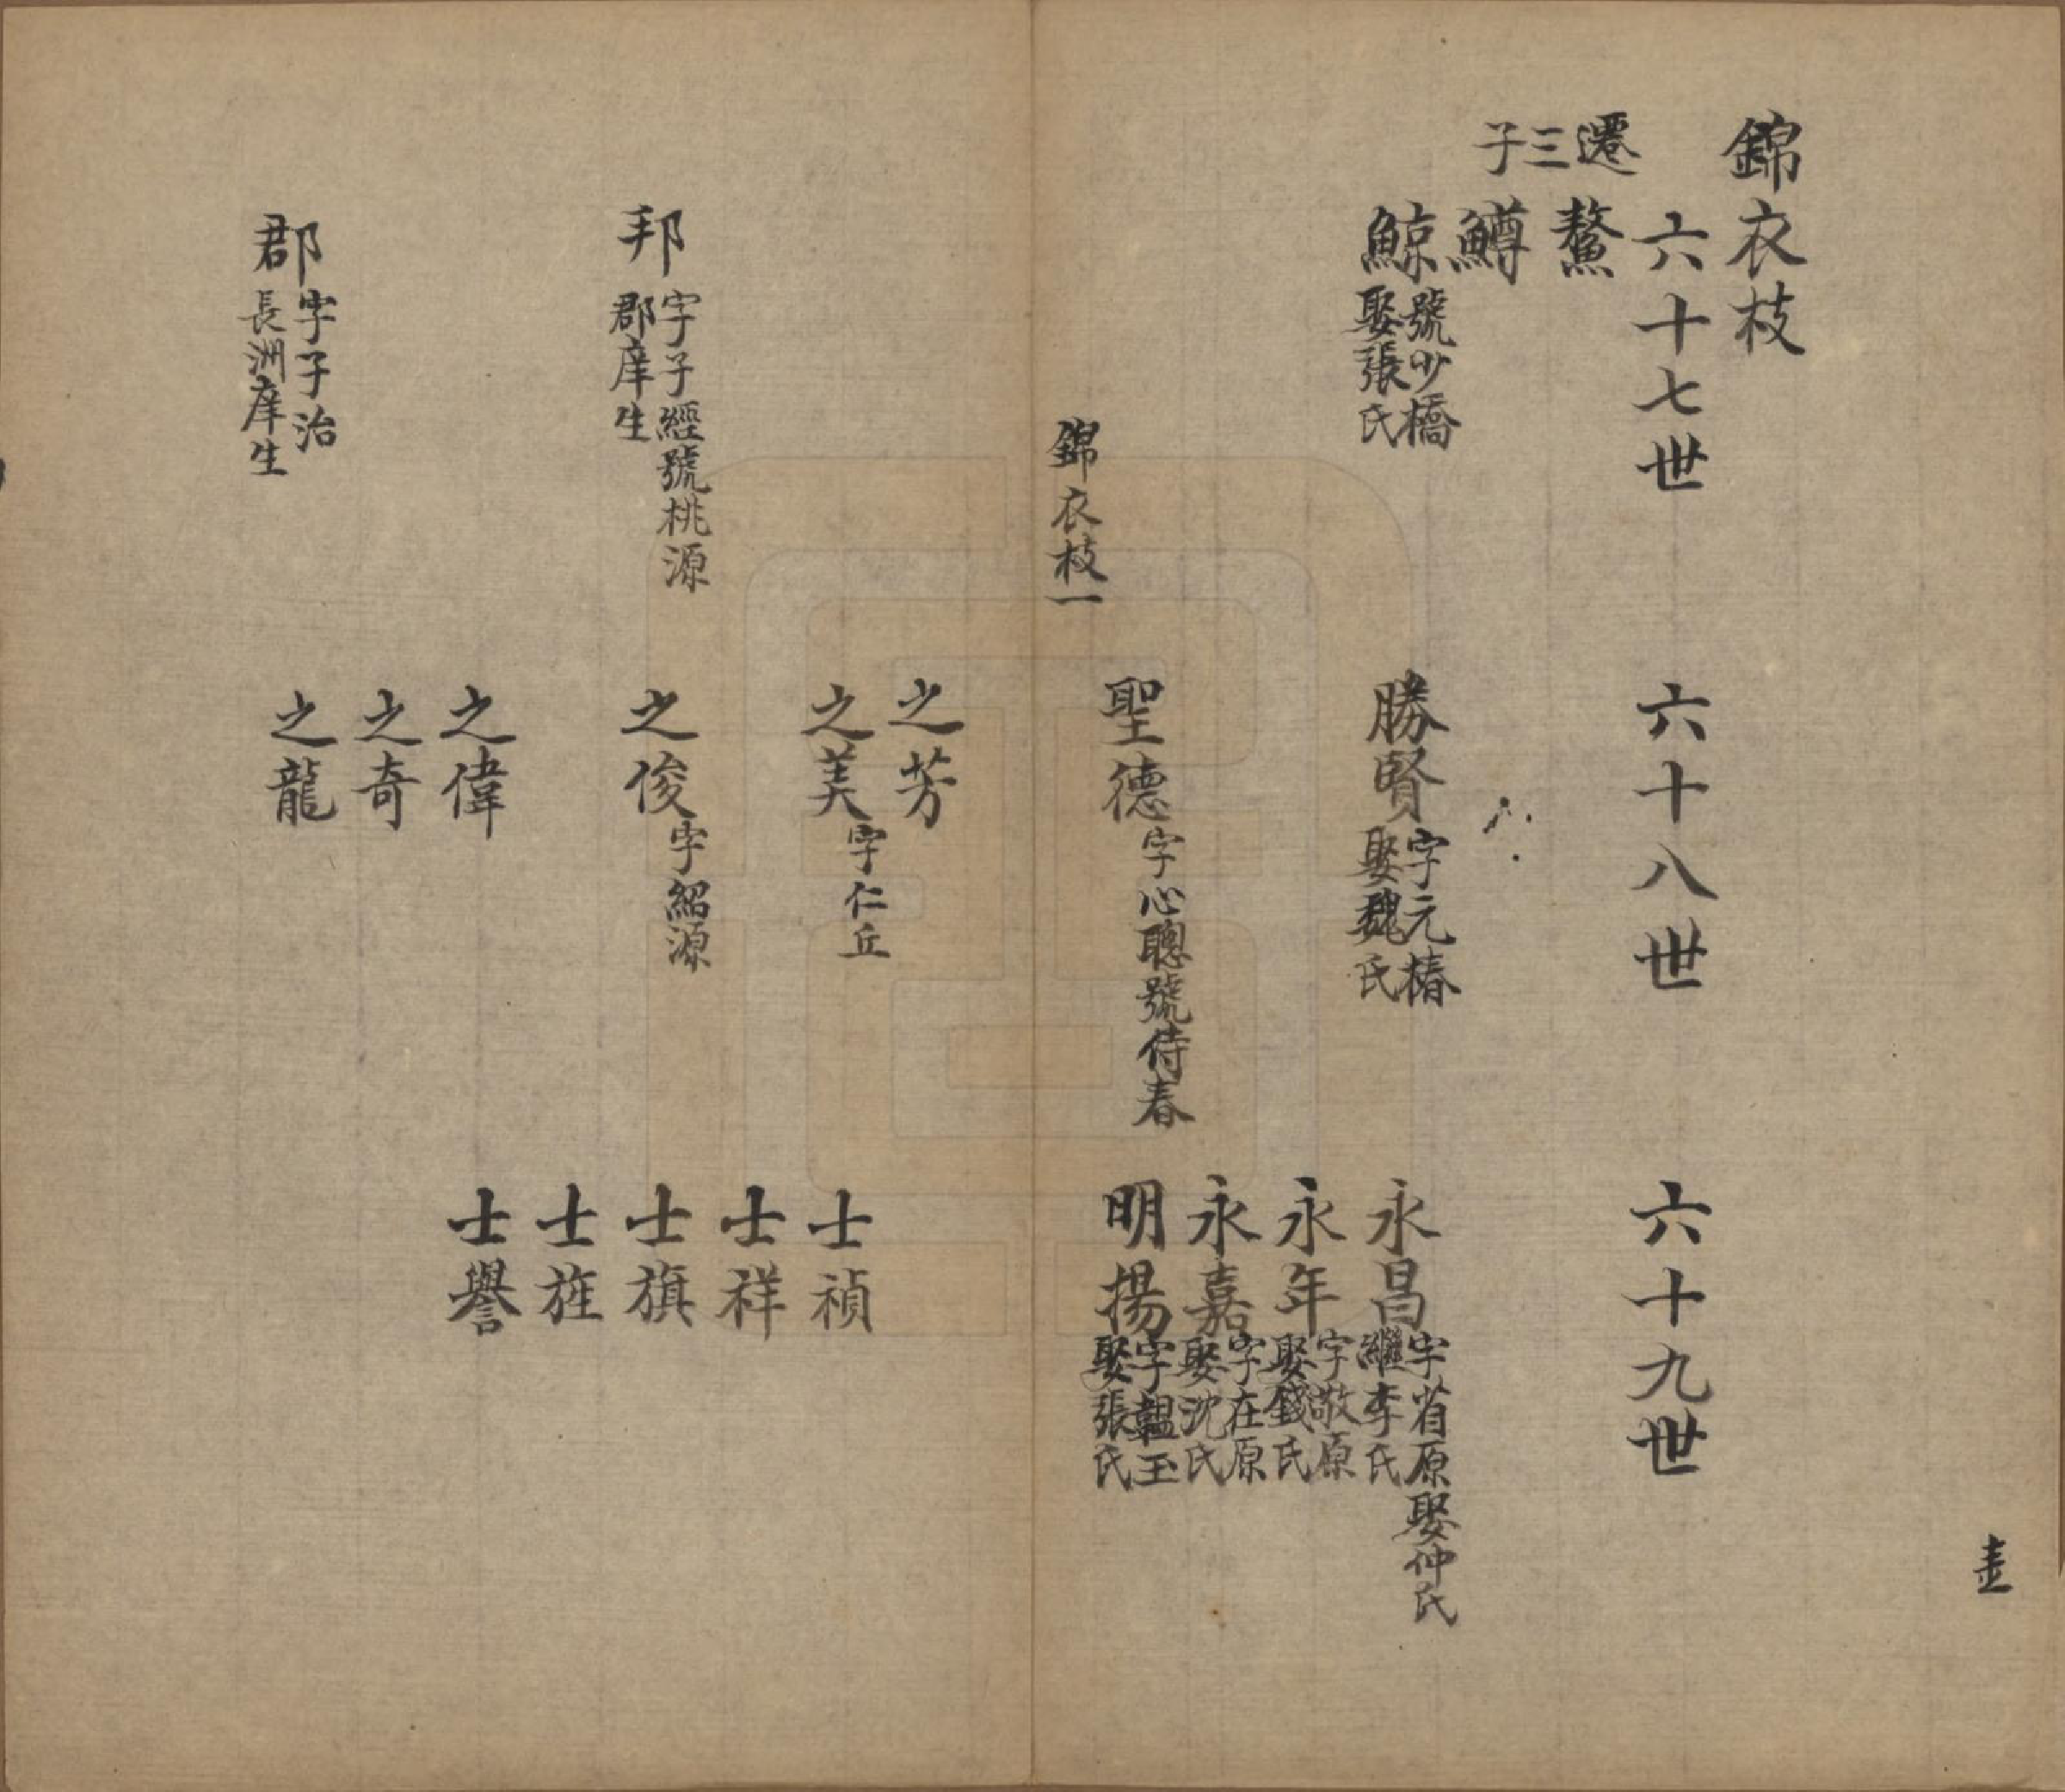 錦衣枝
六十七世
六十八世
六十九世
遷三子
鰲
鱒
鯨
號少橋
娶張氏
勝賢
字元椿
娶魏氏
永昌
字省原娶仲氏
繼李氏
永年
字敬原
娶錢氏
永嘉
字在原
娶沈氏
聖德
字心聰號侍春
明揚
字韞玉
娶張氏
錦衣枝一
之芳
之美
字仁丘
士禎
士祥
邦
字子經號桃源
郡庠生
之俊
字紹源
士旗
士旌
之偉
士譽
之奇
郡
字子治
長洲庠生
之龍